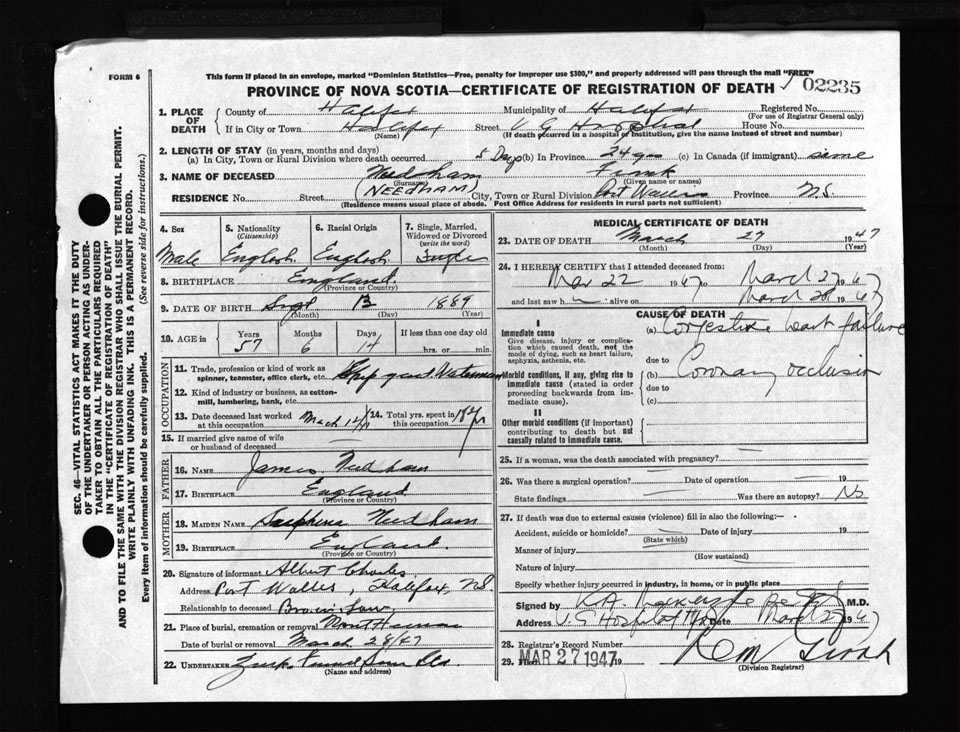 FORM 6
This form if placed in an envelope, marked "Dominion Statistics—Free, penalty for improper use $300," and properly addressed will pass through the mail "FREE"
PROVINCE OF NOVA SCOTIA—CERTIFICATE OF REGISTRATION OF DEATH 02235
1. PLACE OF DEATH
County of Halifax Municipality of Halifax Registered No.
(For use of Registrar General only)
If in City or Town Halifax Street V G Hospital House No.
(Name) (If death occurred in a hospital or institution, give the name instead of street and number)
2. LENGTH OF STAY (in years, months and days)
(a) In City, Town or Rural Division where death occurred 5 Days (b) In Province 24 yrs (c) In Canada (if immigrant) same
3. NAME OF DECEASED Needham Frank
(Surname) (Given name or names)
(NEEDHAM)
RESIDENCE No. Street City, Town or Rural Division Port Wallis Province N.S.
(Residence means usual place of abode. Post Office Address for residents in rural parts not sufficient)
4. Sex 5. Nationality (Citizenship) 6. Racial Origin 7. Single, Married, Widowed or Divorced (write the word)
Male English English Single
8. BIRTHPLACE England
(Province or Country)
9. DATE OF BIRTH Sept 13 1889
(Month) (Day) (Year)
10. AGE in Years Months Days If less than one day old
57 6 14 hrs. or min.
OCCUPATION
11. Trade, profession or kind of work as spinner, teamster, office clerk, etc. Ship yard
12. Kind of industry or business, as cotton-mill, lumbering, bank, etc.
13. Date deceased last worked at this occupation March 14/47 14. Total yrs. spent in this occupation
15. If married give name of wife or husband of deceased
FATHER
16. NAME James Needham
17. BIRTHPLACE England
(Province or Country)
MOTHER
18. MAIDEN NAME Needham
19. BIRTHPLACE England
(Province or Country)
20. Signature of informant Albert Charles
Address Port Wallis, Halifax, N.S.
Relationship to deceased Bro-in-Law
21. Place of burial, cremation or removal Mount Herman
Date of burial or removal March 28/47
22. UNDERTAKER
(Name and address)
MEDICAL CERTIFICATE OF DEATH
23. DATE OF DEATH March 27 1947
(Month) (Day) (Year)
24. I HEREBY CERTIFY that I attended deceased from:
Mar 22 1947 to March 27 1947
and last saw h alive on March 1947
CAUSE OF DEATH
I
Immediate cause (a) Congestive heart failure
Give disease, injury or complication which caused death, not the mode of dying, such as heart failure, asphyxia, asthenia, etc.
due to
Morbid conditions, if any, giving rise to immediate cause (stated in order proceeding backwards from immediate cause).
(b) Coronary occlusion
due to
(c)
II
Other morbid conditions (if important) contributing to death but not causally related to immediate cause.
25. If a woman, was the death associated with pregnancy?
26. Was there a surgical operation? Date of operation 19
State findings Was there an autopsy? No
27. If death was due to external causes (violence) fill in also the following:—
Accident, suicide or homicide? Date of injury 19
(State which)
Manner of injury
(How sustained)
Nature of injury
Specify whether injury occurred in industry, in home, or in public place
Signed by M.D.
Address V.G Hospital Hfx Date March 27 1947
28. Registrar's Record Number
29. Filed MAR 27 1947 19
(Division Registrar)
SEC. 46—VITAL STATISTICS ACT MAKES IT THE DUTY
OF THE UNDERTAKER OR PERSON ACTING AS UNDER-
TAKER TO OBTAIN ALL THE PARTICULARS REQUIRED
IN THE "CERTIFICATE OF REGISTRATION OF DEATH"
AND TO FILE THE SAME WITH THE DIVISION REGISTRAR WHO SHALL ISSUE THE BURIAL PERMIT.
WRITE PLAINLY WITH UNFADING INK. THIS IS A PERMANENT RECORD.
Every item of information should be carefully supplied. (See reverse side for instructions.)